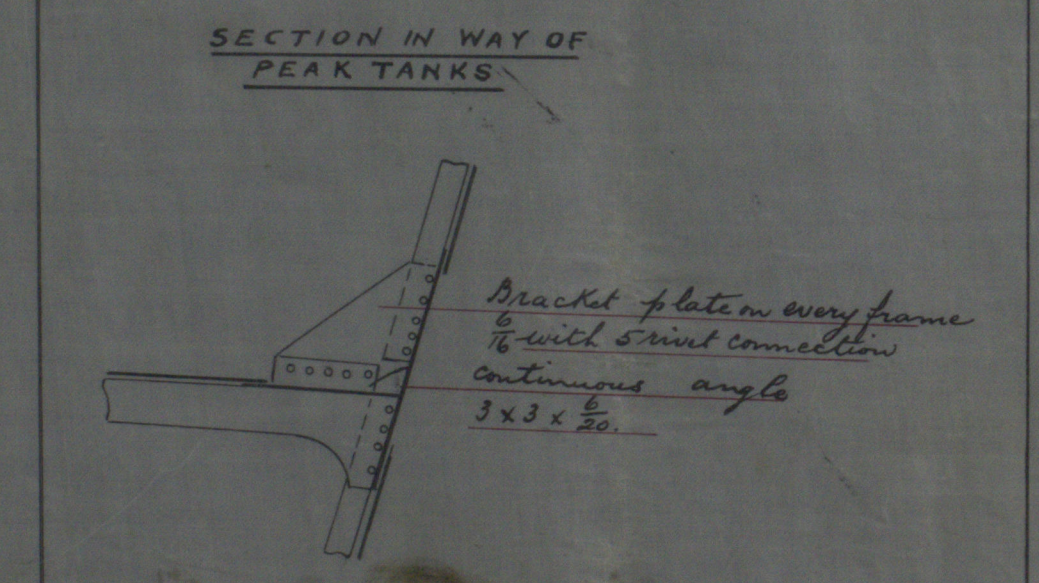 SECTION IN WAY OF
PEAK TANKS
Bracket plate on every frame
6/16 with 5 rivet connection
continuous angle
3 x 3 x 6/20.